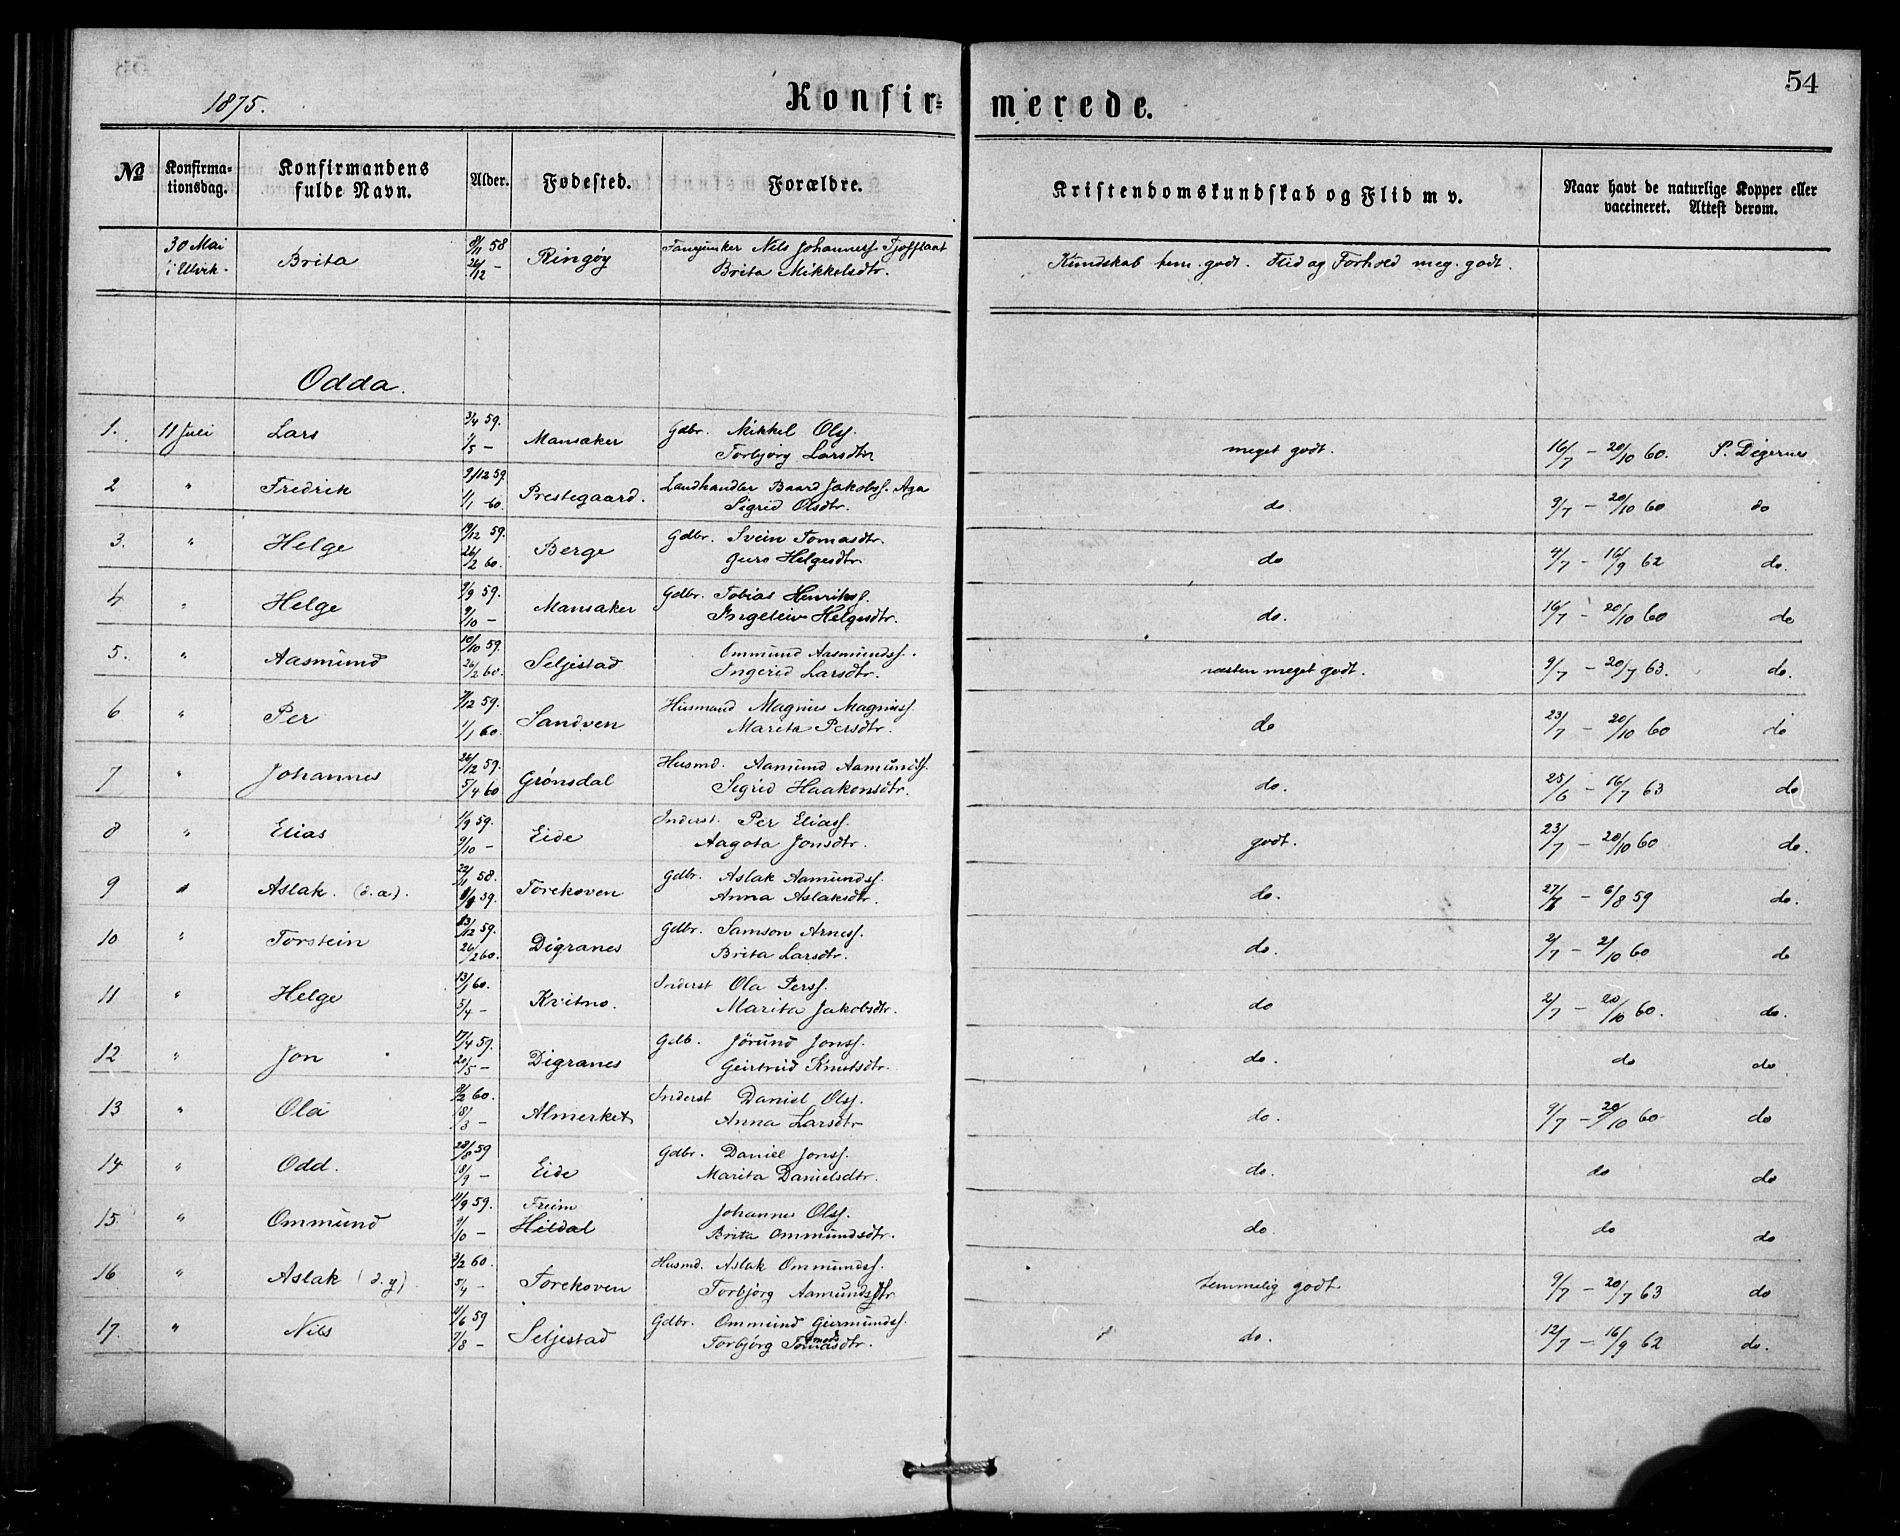 54
1875.
Konfir-merede.
№ Konfirma-tionsdag. Konfirmandens fulde Navn. Alder. Fødested. Forældre. Kristendomskundskab og Flid m v. Naar havt de naturlige Kopper eller vaccineret. Attest derom.
30 Mai 8/1 58 Fanejunker Nils Johanness.
i Ulvik. Brita 26/12 – Ringøy Brita Mikkelsdtr. Kundskab tem. godt. Flid og Forhold meg. godt.
Odda.
1. 11 Juli Lars 3/4 59. Mansaker Gdbr. Mikkel Olss.
1/5 – Torbjørg Larsdtr. meget godt. 16/7 – 20/10 60. S. Digernes
2 " Fredrik 9/12 59 Prestegaard. Landhandler Baard Jakobss. Aga
1/1 60. Sigrid Olsdtr. do. 9/7 – 20/10 60 do
3. " Helge 19/12 59. Berge Gdbr. Svein Tomasdtr.
26/2 60. Guro Helgesdtr. do 4/7 – 16/9 62 do.
4 " Helge 9/9 59. Mansaker Gdbr. Tobias Henriks.
9/10 – Helgesdtr. do. 16/7 – 20/10 60 do
5. " Aasmund 10/10 59. Seljestad Ommund Aasmundss.
26/2 60. Ingerid Larsdtr. næsten meget godt. 9/7 – 20/7 63. do.
6 " Per /12 59. Sandven Husmand Magnus Magnuss.
1/1 60. Marita Persdtr. do 23/7 – 20/10 60 do
7 " Johannes 26/12 59. Grønsdal Husmd. Aamund Aamundss.
5/4 60 Sigrid Haakonsdtr. do. 25/6 – 16/7 63 do
8 " Elias 1/9 59. Eide Inderst. Per Eliass.
9/10 – Aagota Jonsdtr. godt. 23/7 – 20/10 60 do.
9 " Aslak. (d.æ). 58. Torekoven Gdbr. Aslak Aamundss.
59. Anna Aslaksdtr. do. 27/7 – 6/8 59 do.
10 " Torstein 23/12 59. Digranes Gdbr. Samson Arness.
26/2 60. Brita Larsdtr. do. 2/7 – 2/10 60 do
11 " Helge 13/1 60. Kvitno. Inderst Ola Perss.
5/4 – Marita Jakobsdtr. do 2/7 – 20/10 60. do.
12 " Jon 17/4 59. Digranes Gdb. Jørund Jonss.
20/5 – Geirtrud Knutsdtr. do. do do
13 " Ola 8/2 60. Almerket Inderst Daniel Olss.
18/3 – Anna Larsdtr do. 9/7 – 20/10 60 do
14 " Odd. 28/8 59 Eide Gdbr. Daniel Jonss.
18/9 – Marita Danielsdtr. do. do do
15. " Ommund 11/9 59. Freim Hildal Johannes Olss.
9/10 – Brita Ommundsdtr. do. do do
16 " Aslak (d.y). 3/2 60. Torekoven Husmd. Aslak Ommundss.
5/4 – Torbjørg Aamundsdtr temmelig godt 9/7 – 20/7 63 do
17. " Nils 11/6 59 Seljestad Gdbr. Ommund Geirmundss.
7/8 – Torbjørg dtr. do. 12/7 – 16/9 62 do.